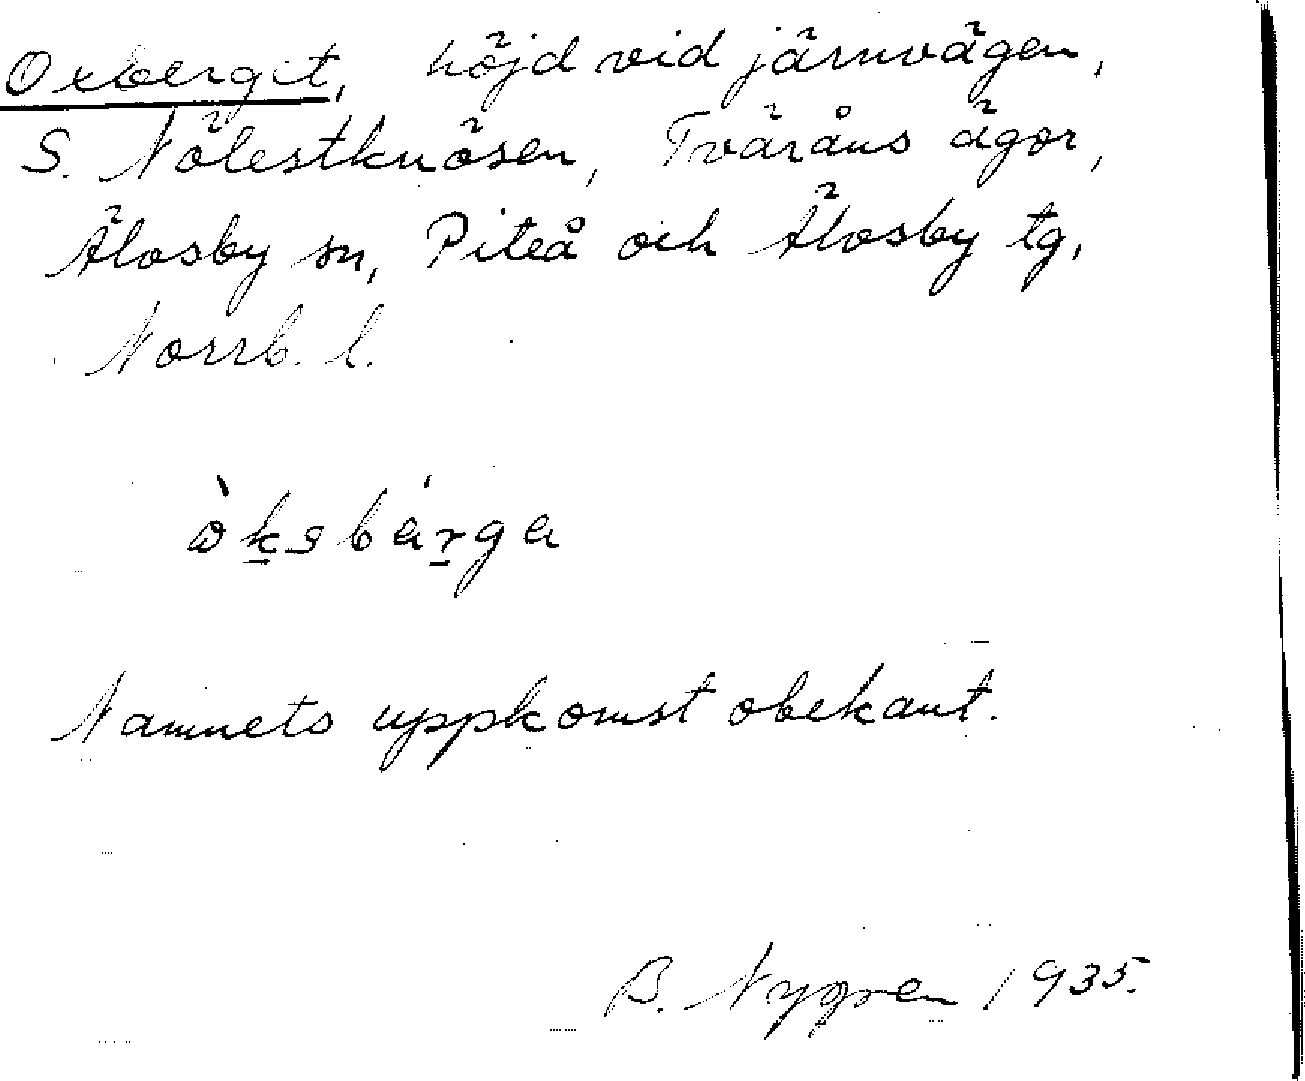 Oxberget, höjd vid järnvägen,
S. Nölestknösen, Tväråns ägor,
Älvsby sn, Piteå och Älvsby tg,
Norrb. l.
òksbárga
Namnets uppkomst obekant.
B. Nygren 1935.